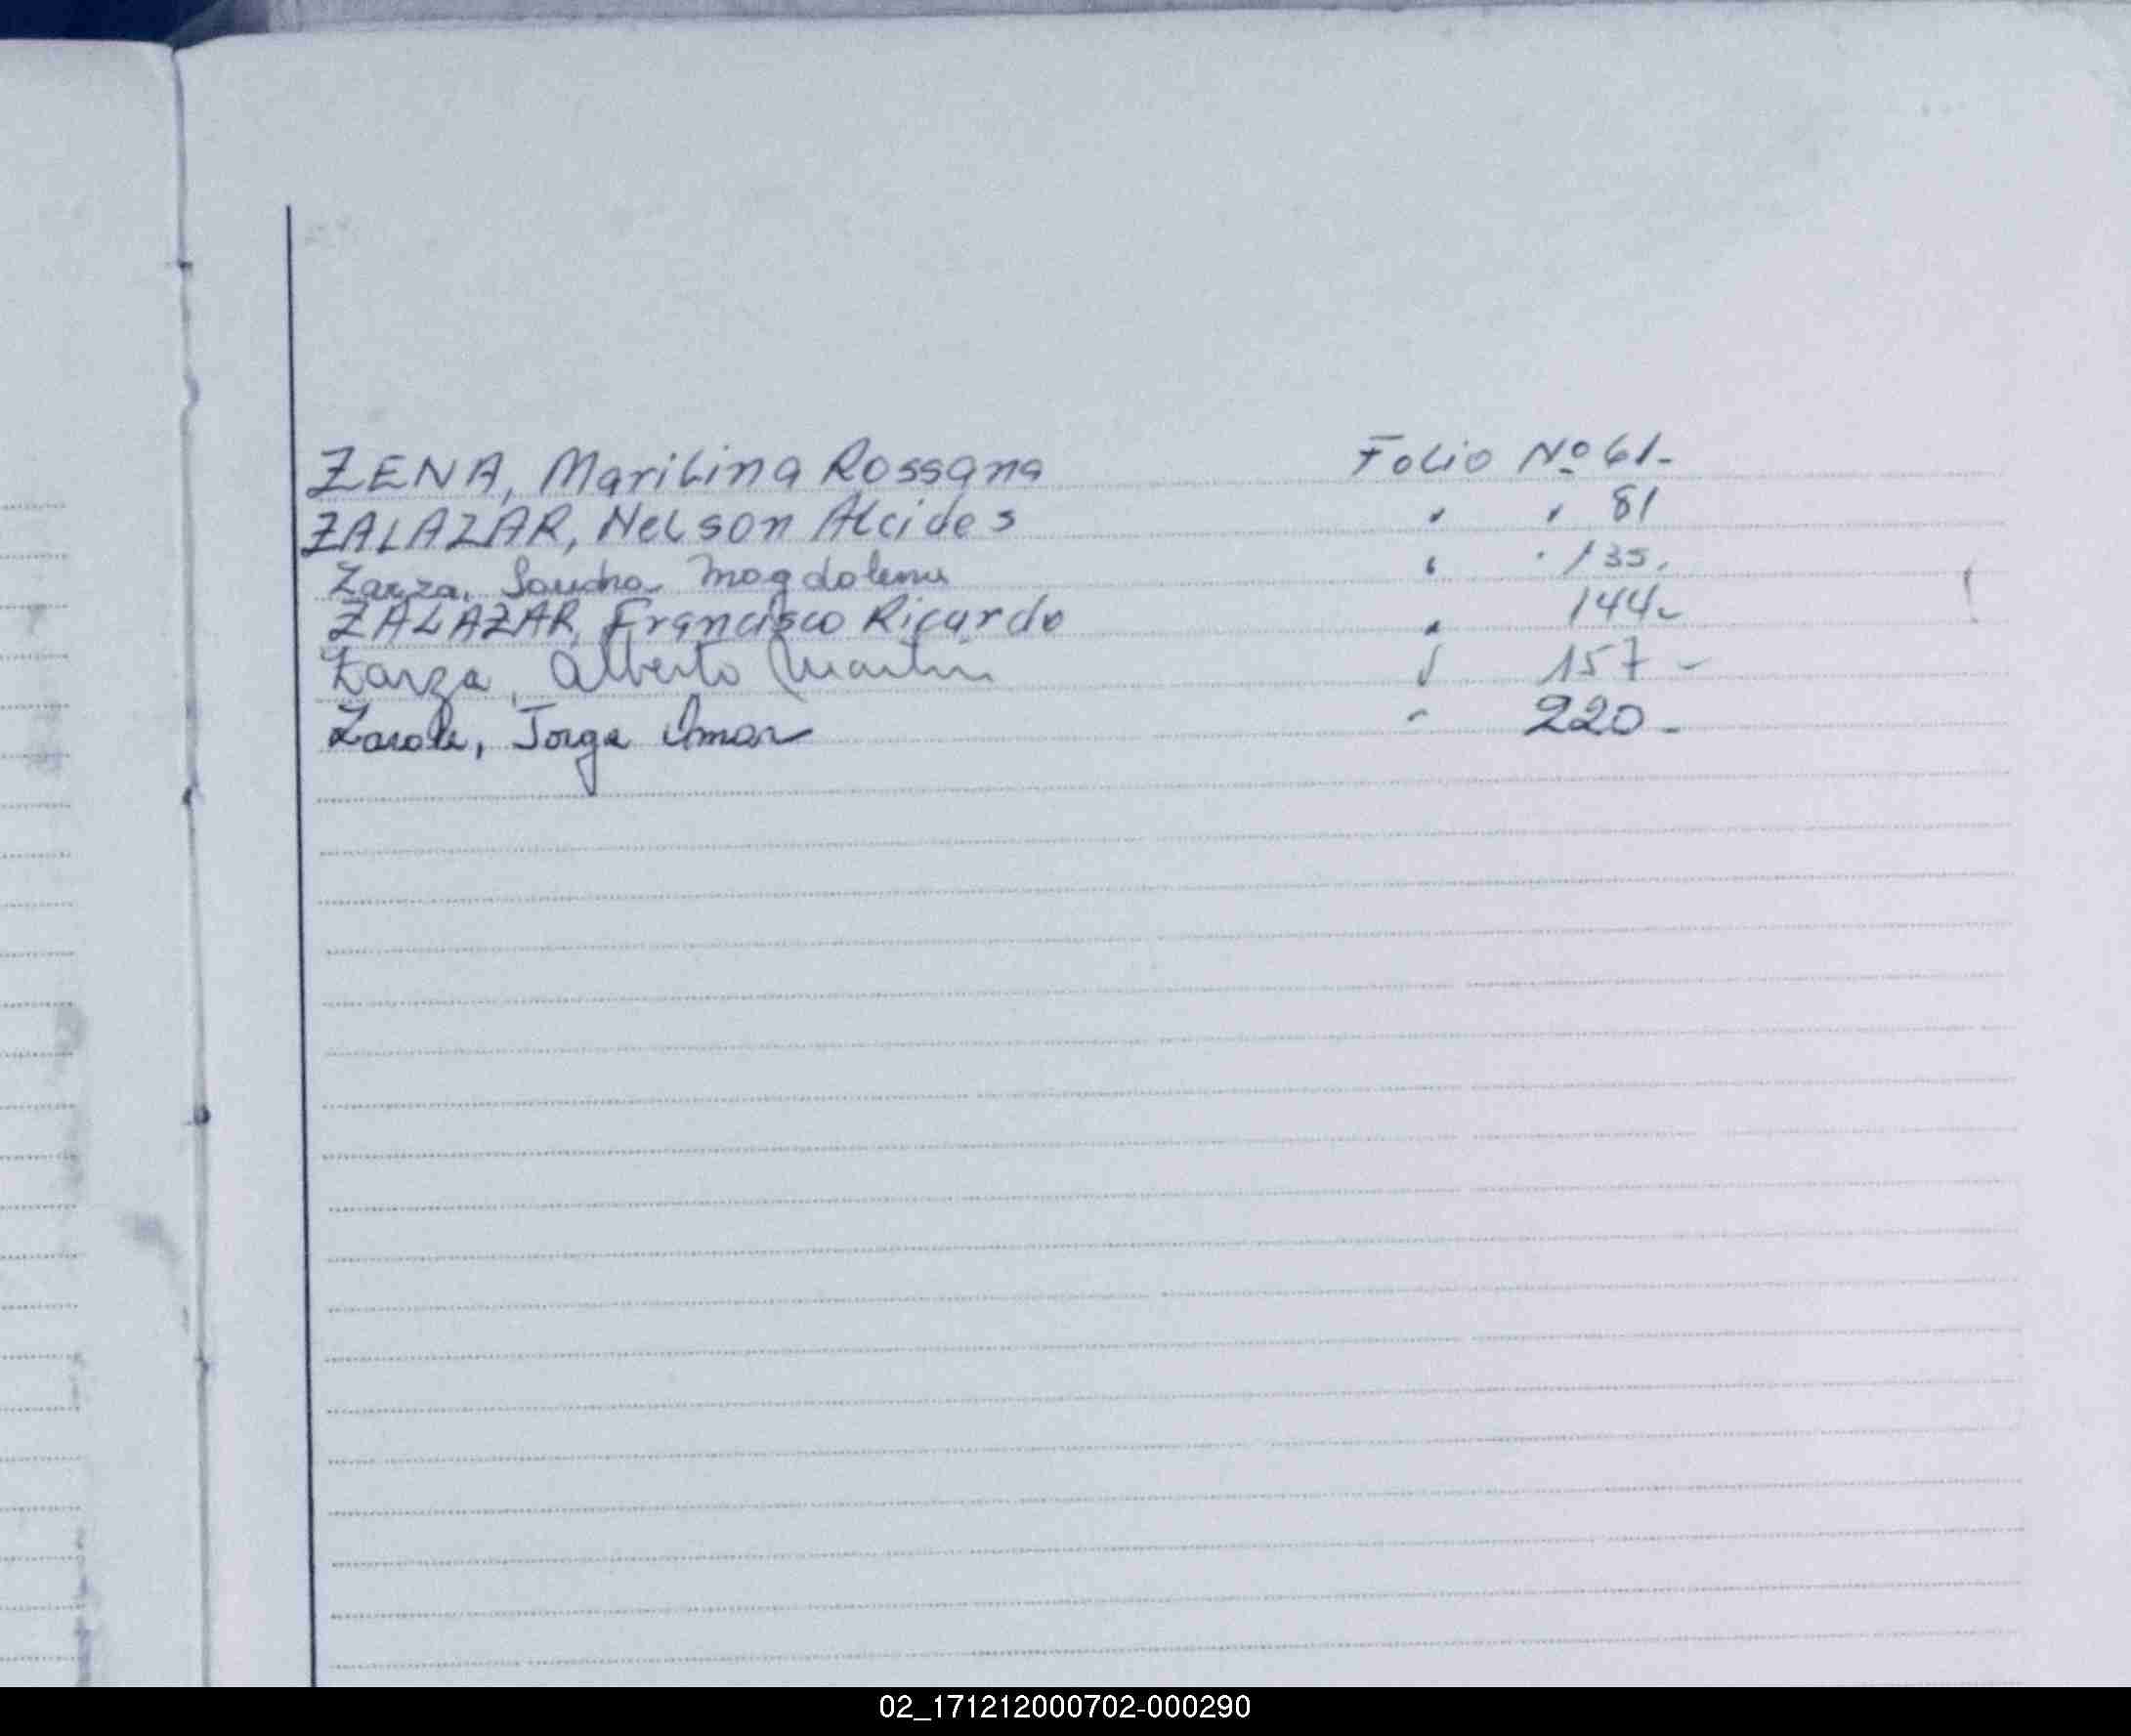 ZENA, Marilina Rossana Folio Nº 61-
ZALAZAR, Nelson Alcides " " 81
Zarza, Sandra Magdalena " " 135.
ZALAZAR, Francisco Ricardo " 144-
Zarza, Alberto Martín " 157-
Zarate, Jorge Omar " 220-
02_171212000702-000290